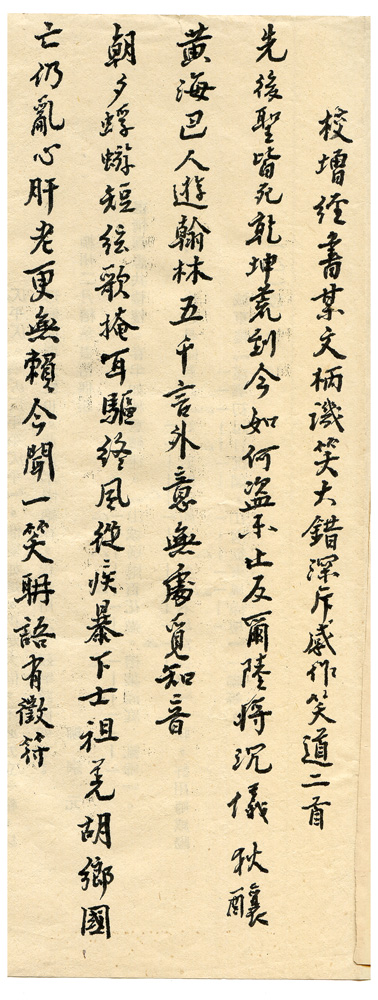 校增經書某文柄譏笑大錯深斥感作笑道二首
先後聖皆死乾坤荒到今如何盜不止反爾陸將沉儀狄釀
黃海巴人遊翰林五千言外意無處覓知音
朝夕蜉蝣短絃歌掩耳驅終風從疾暴下士祖羌胡鄉國
亡仍亂心肝老更無賴今聞一笑聃語有徵符